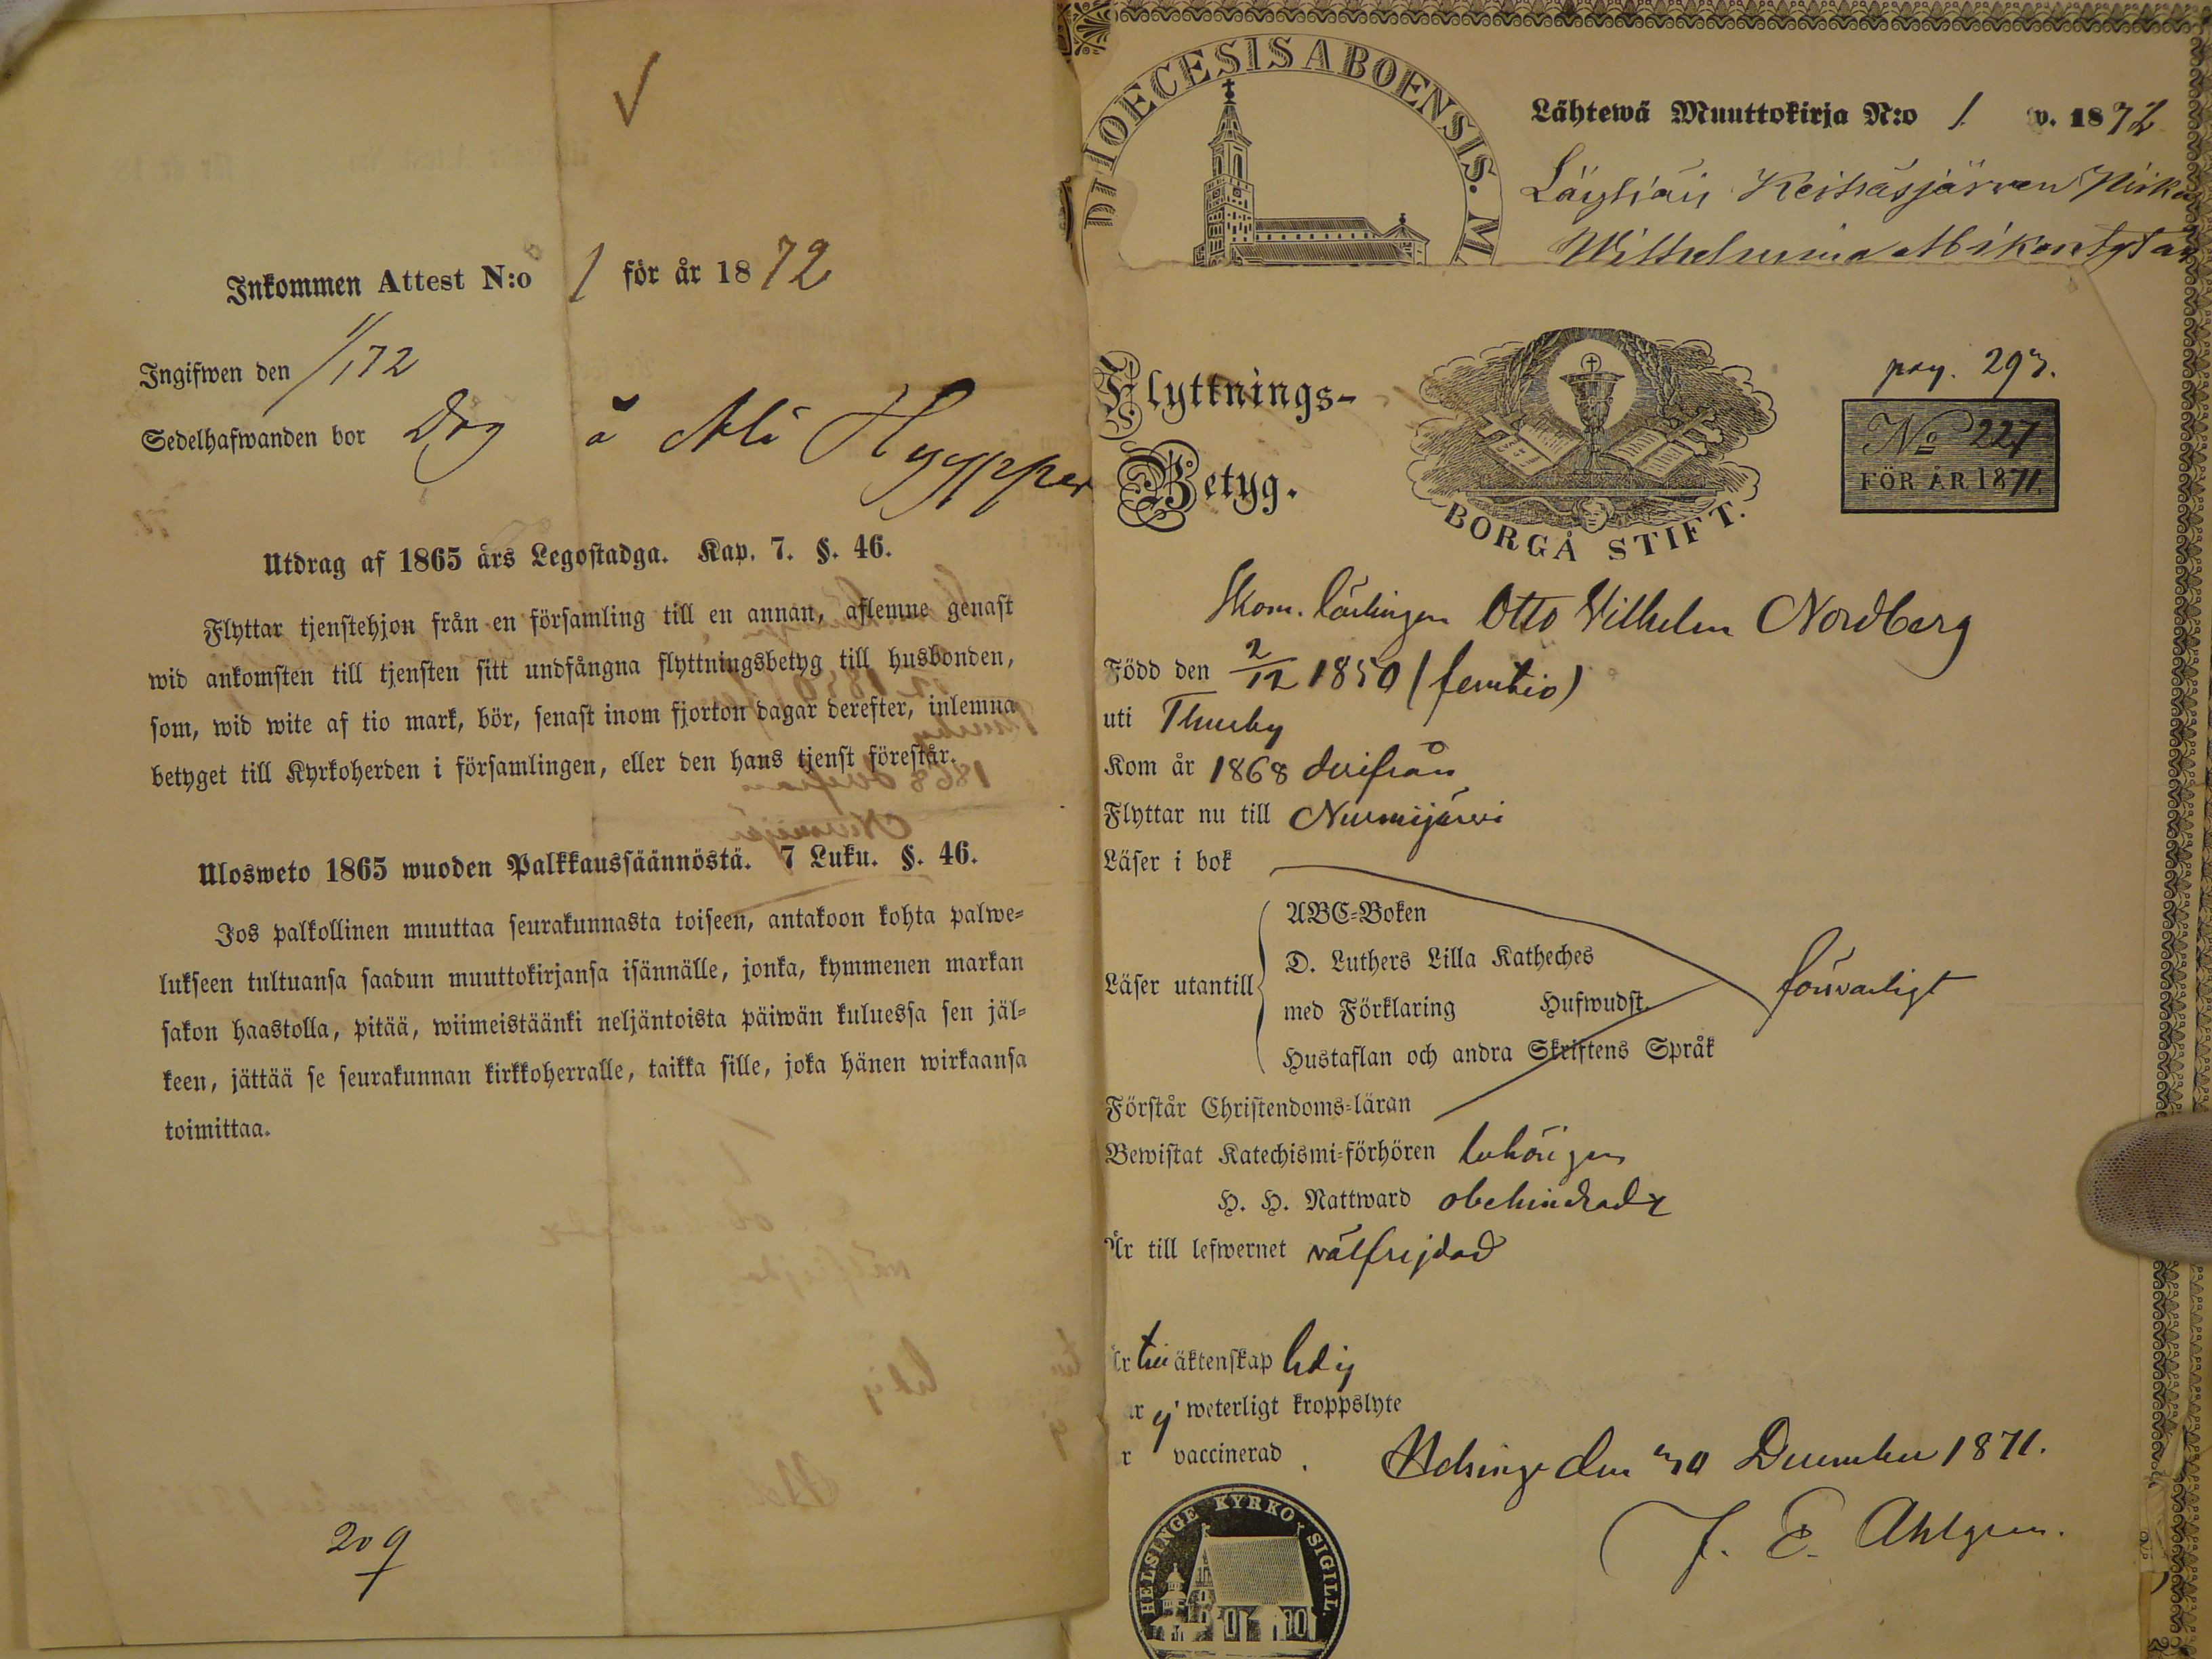 Inkommen Attest N:o 1 för år 1872
Ingifwen den 1/1 72
Sedelhafwanden bor Drg å Ali Hyyppar
Utdrag af 1865 års Legostadga. Kap. 7. §. 46.
Flyttar tjenstehjon från en församling till en annan, aflemne genast
wid ankomsten till tjensten sitt undfångna flyttningsbetyg till husbonden,
som, wid wite af tio mark, bör, senast inom fjorton dagar derefter, inlemna
betyget till Kyrkoherden i församlingen, eller den hans tjenst förestår.
Ulosweto 1865 wuoden Palkkaussäännöstä. 7 Luku. §. 46.
Jos palkollinen muuttaa seurakunnasta toiseen, antakoon kohta palwe-
lukseen tultuansa saadun muuttokirjansa isännälle, jonka, kymmenen markan
sakon haastolla, pitää, wiimeistäänki neljäntoista päiwän kuluessa sen jäl-
keen, jättää se seurakunnan kirkkoherralle, taikka sille, joka hänen wirkaansa
toimittaa.
209
DIOECESIS ABOENSIS. M
Lähtewä Muuttokirja N:o 1 v. 1872
Wilhelmina
Flyttnings-
Betyg.
BORGÅ STIFT.
pag. 293.
No 227
FÖR ÅR 1871.
Skom. lärlingen Otto Vilhelm Nordberg
Född den 2/12 1850 (femtio)
uti Thusby
Kom år 1868 derifrån
Flyttar nu till Nurmijärvi
Läser i bok
ABC-Boken
D. Luthers Lilla Katheches
Läser utantill
med Förklaring Hufwudst.
försvarligt
Hustaflan och andra Skriftens Språk
Förstår Christendoms-läran
Bewistat Katechismi-förhören behörigen
H. H. Nattward obehindrad
Är till lefwernet välfrejdad
r till äktenskap ledig
ar ej weterligt kroppslyte
r vaccinerad.
Helsinge den 30 December 1871.
J. E. Ahlgren.
HELSINGE KYRKO SIGILL.